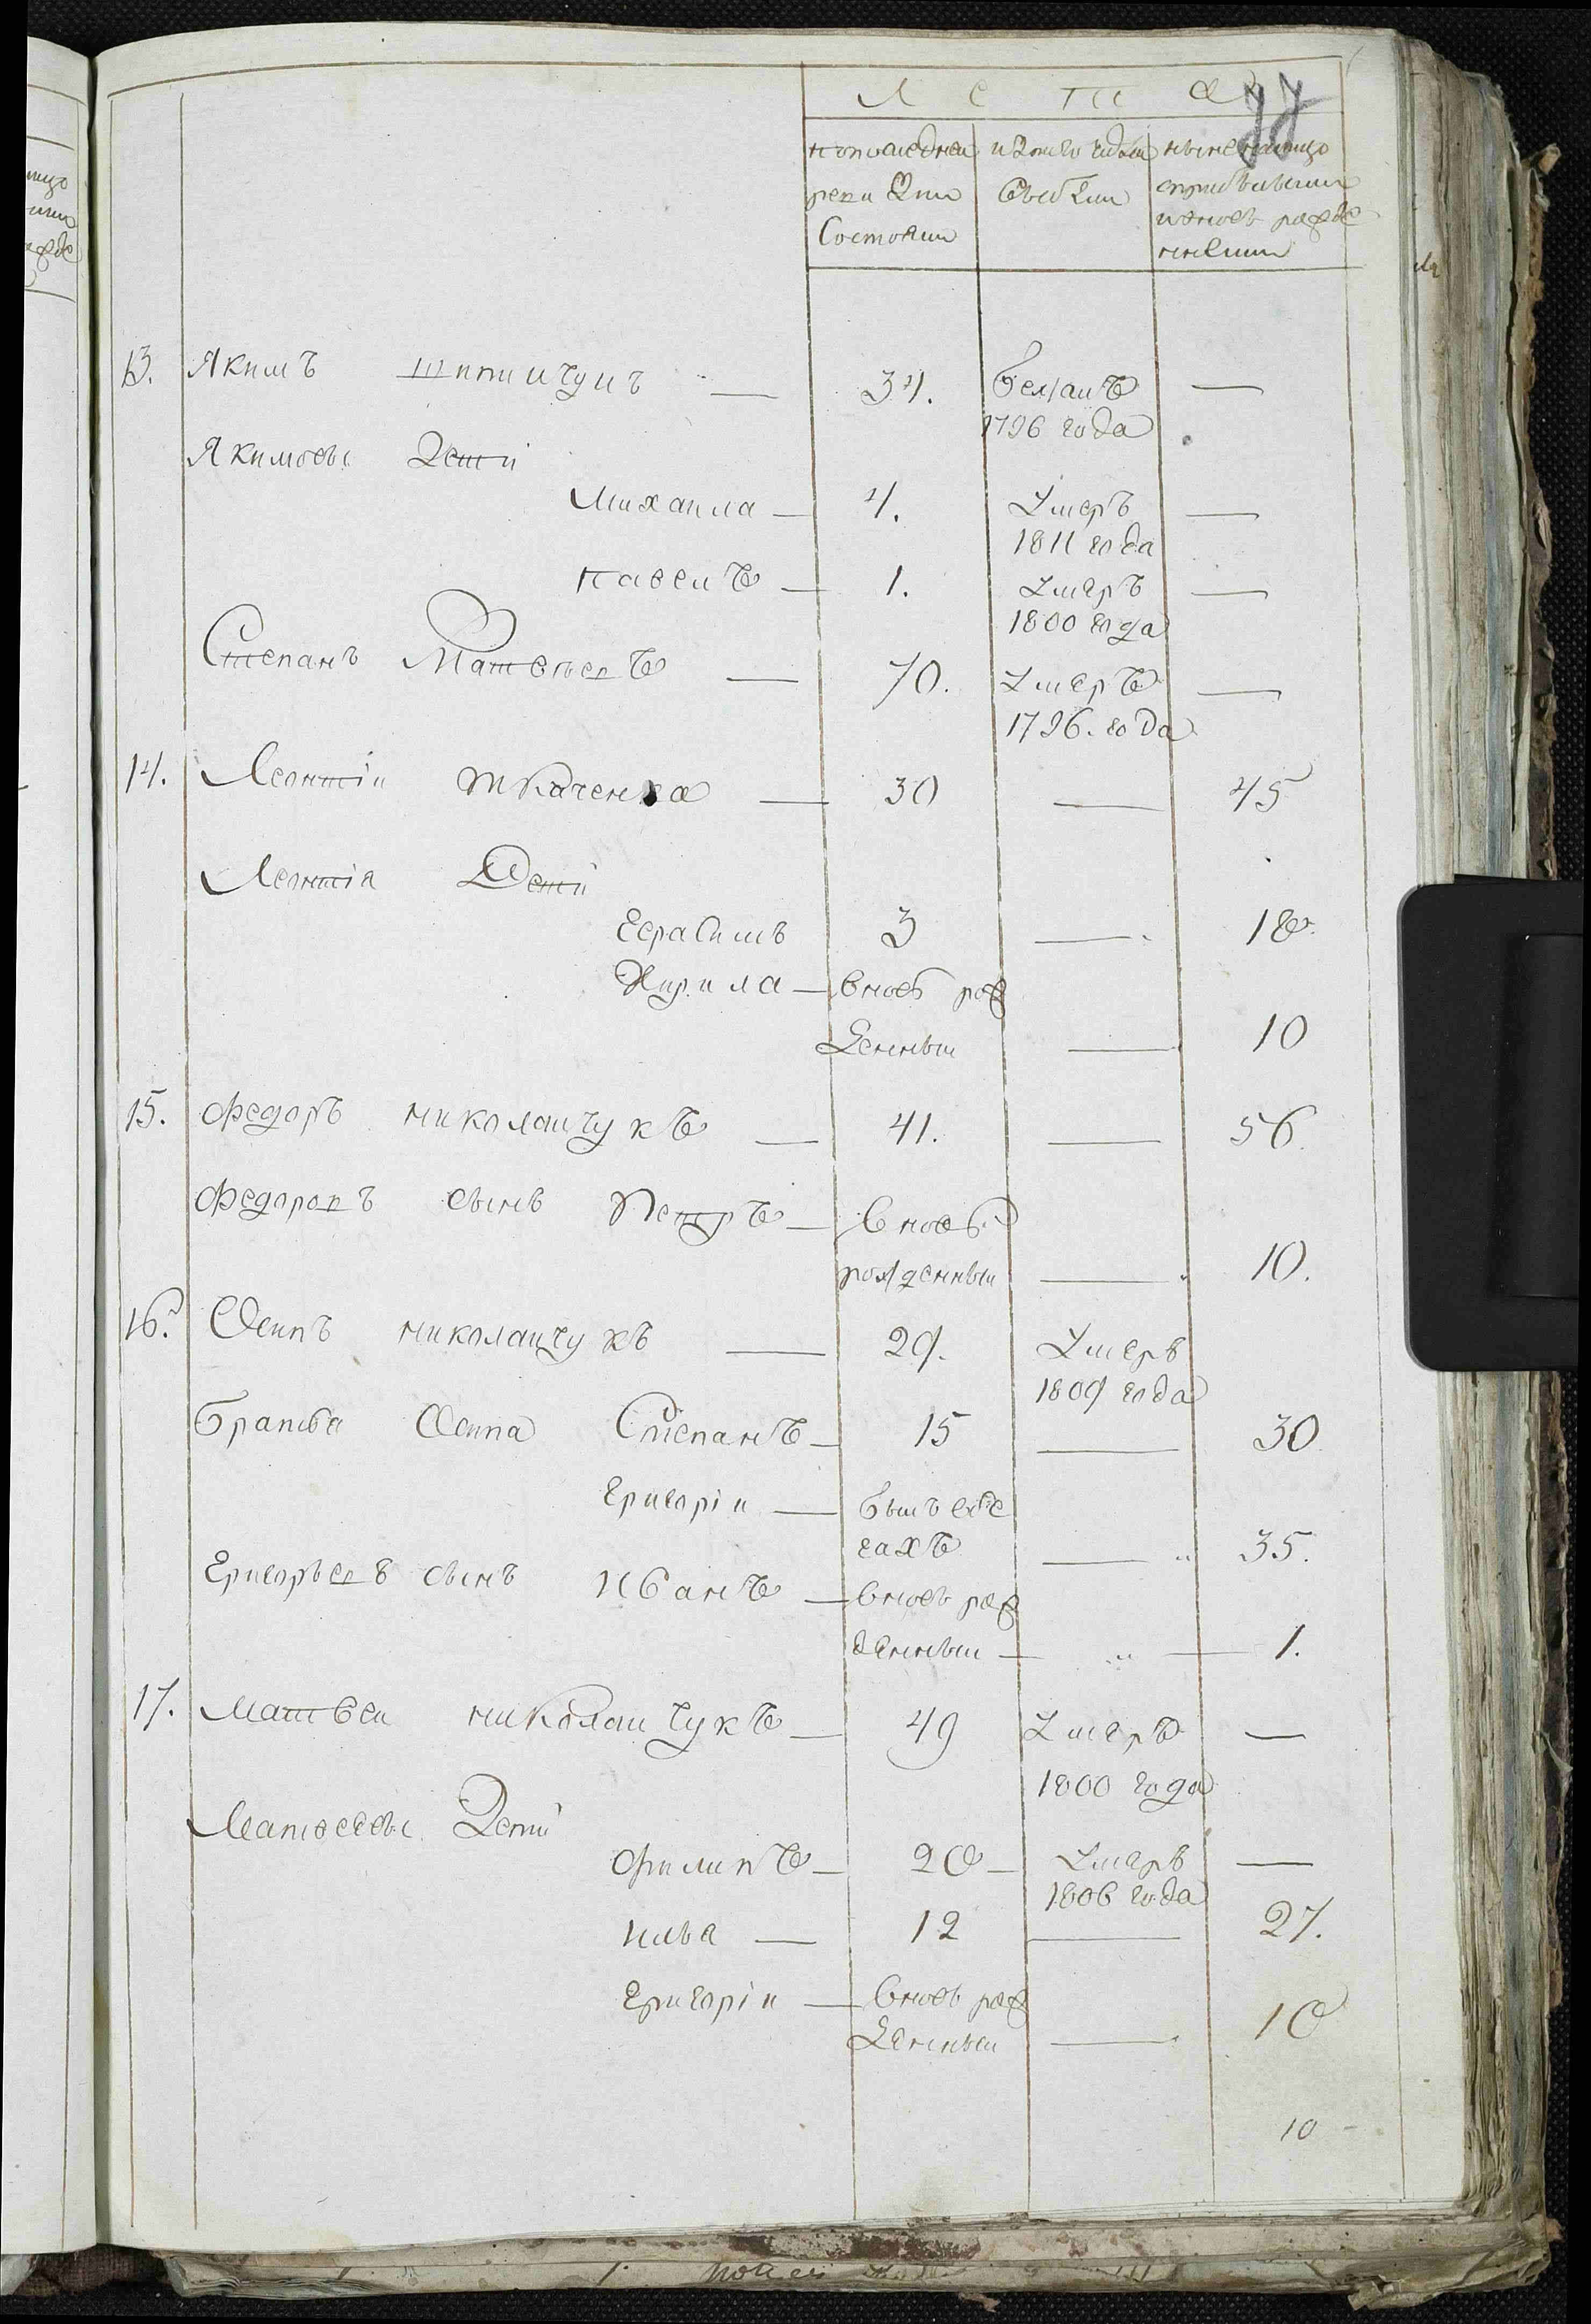 ЛЕТА
77
по последней изтого числа ныненалицо
реви зии выбыли сприбылыми
состояли и вновь рожде
нными
13. Якимъ 34. бежалъ —
1796 года
Якимовы дети
Михаила — 4. умеръ —
1811 года
павелъ — 1. умеръ —
1800 года
Степанъ Матвеевъ — 70. умеръ —
1796. года
14. Леонтіи ткаченка — 30 — 45
Леонтія Дети
Герасимъ 3 — 18.
Кирила — вновь рож
денныи — 10
15. федоръ николаичукъ — 41. — 56.
федоровъ сынъ Петръ — вновь
рожденныи — 10.
16. Осипъ николаичукъ — 29. умеръ
1809 года
братья Осипа Степанъ — 15 — 30
Григоріи — былъ вбе
гахъ — 35.
Григорьевъ сынъ Иванъ — вновь рож
денныи — 1.
17. матвеи николаичукъ — 49 умеръ —
1800 года
Матвеевы Дети
филипъ — 20 — умеръ —
1806 года
илья — 12 — 27.
Григоріи — вновь рож
денныи — 10
10 -